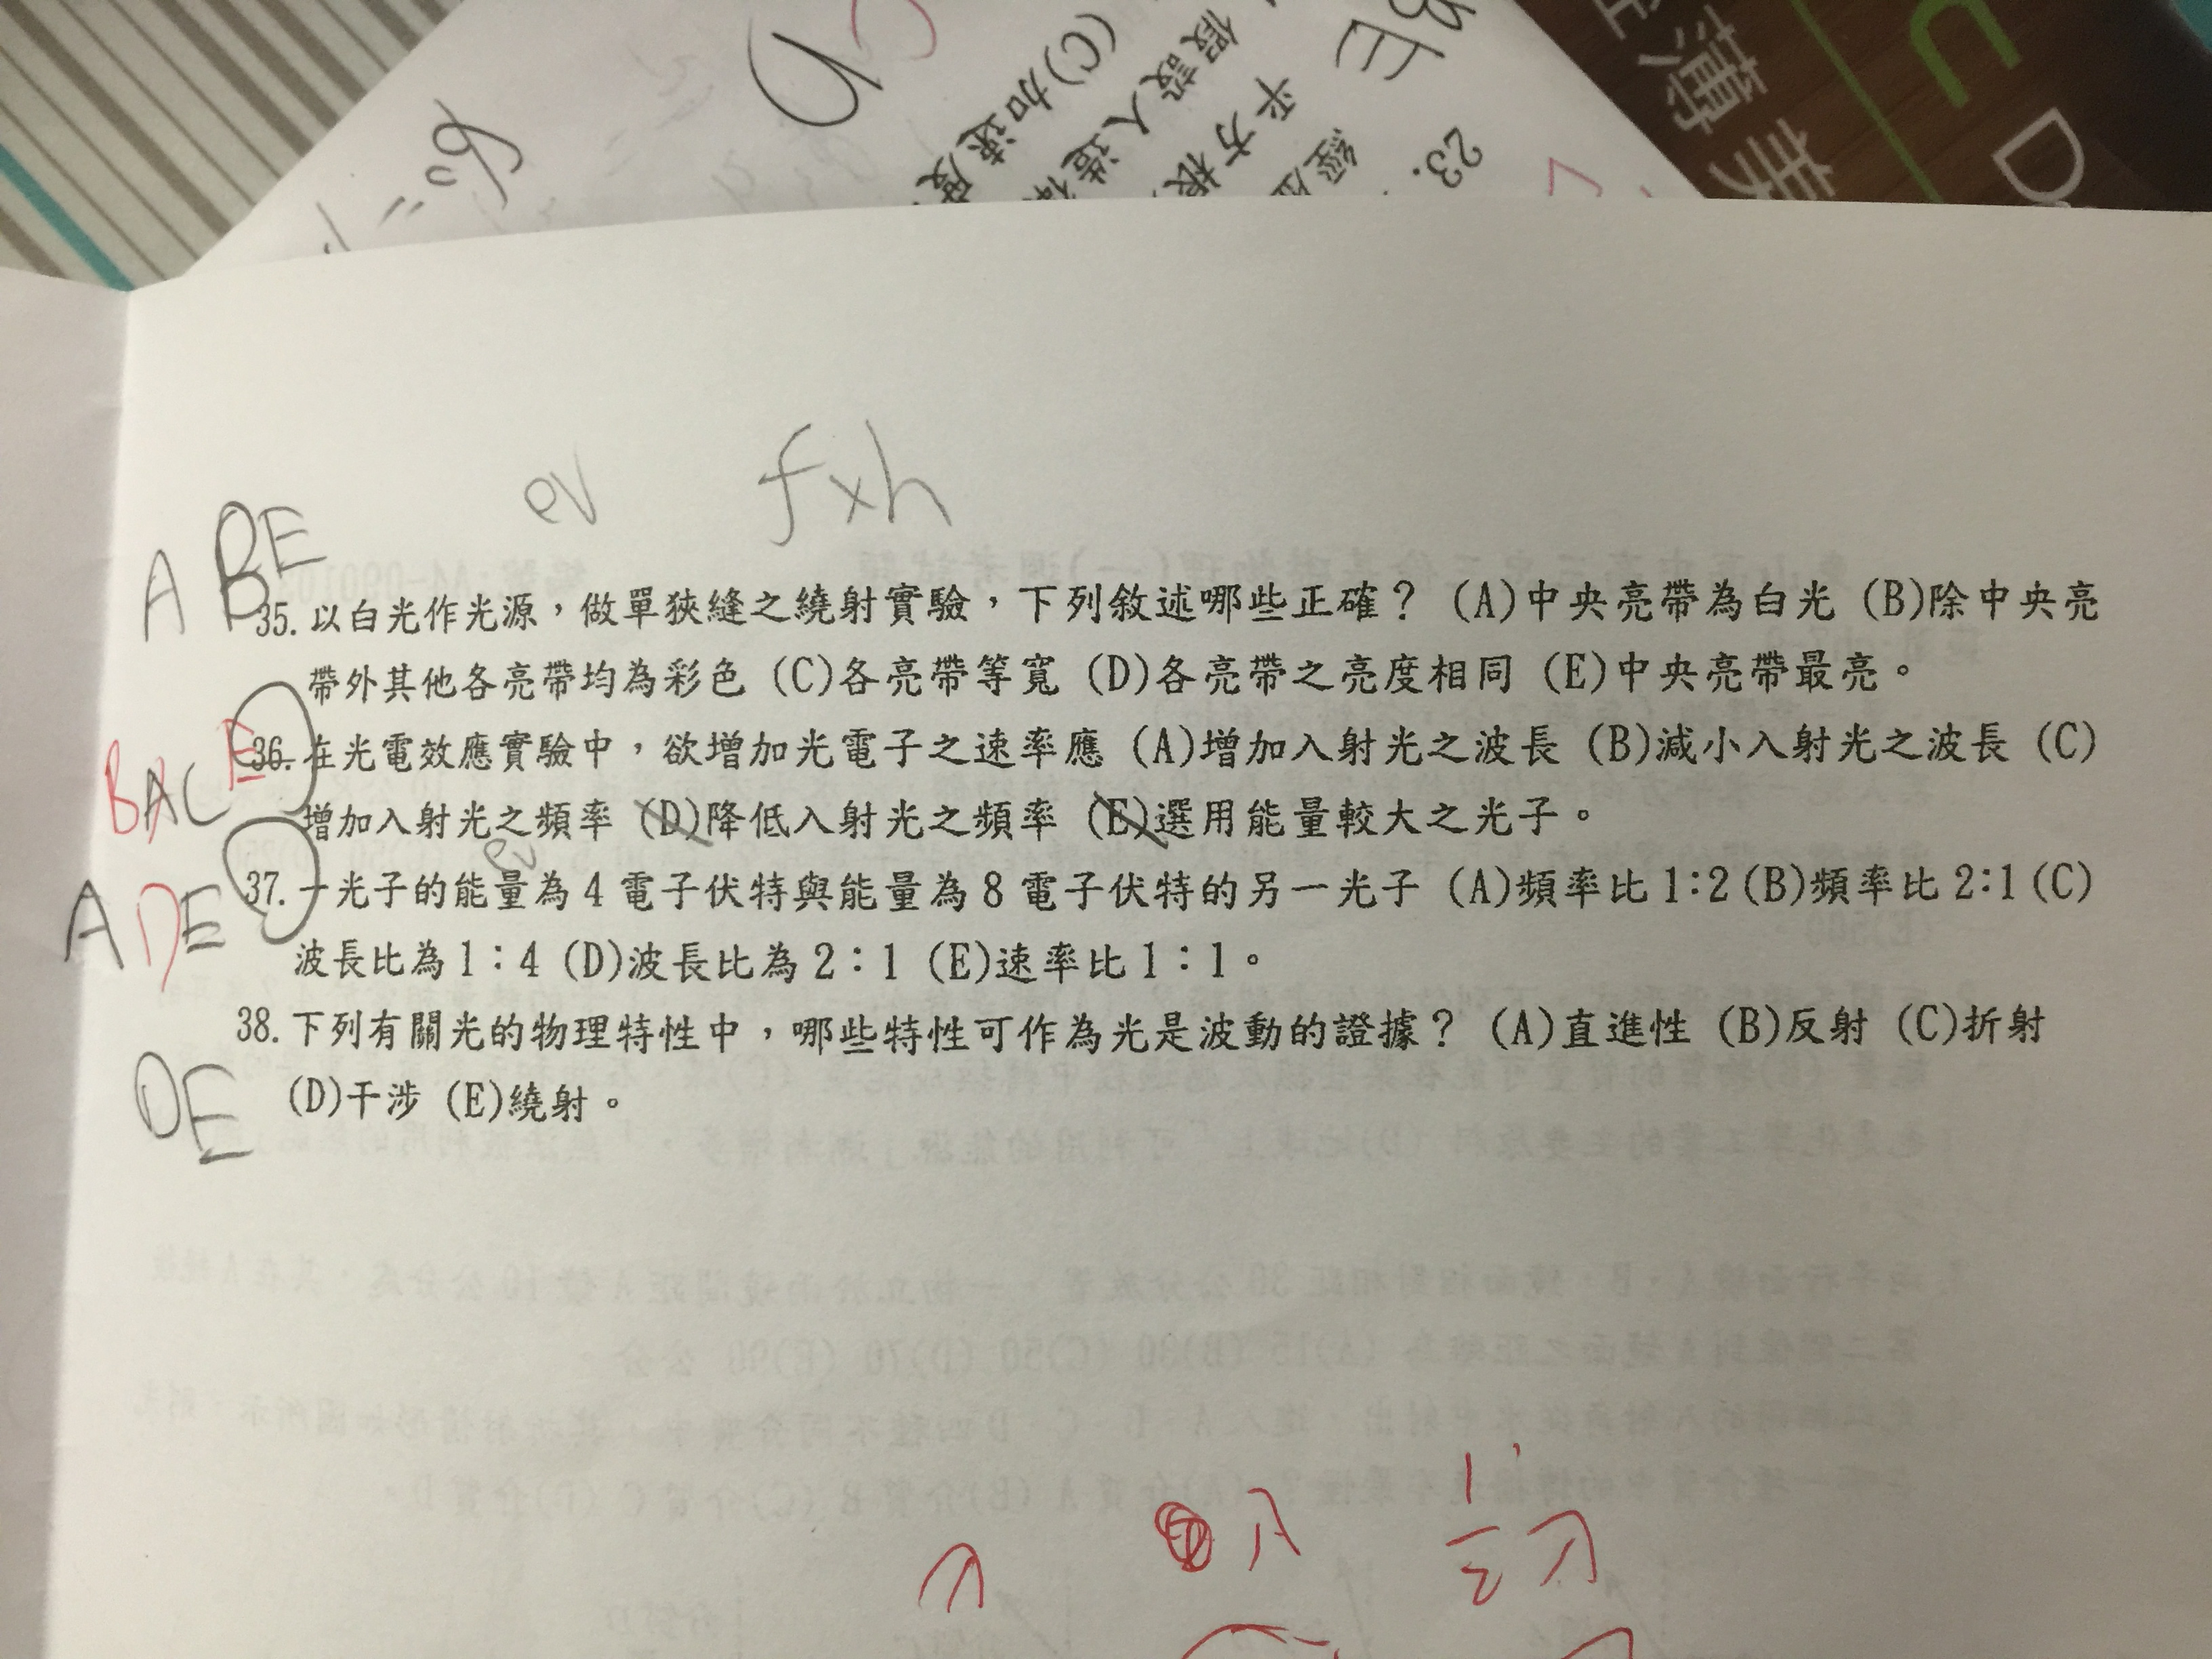 (C)加速度
假設人造
平方根
經
23.
薄 美
U D
ev f×h
ABE
35. 以白光作光源，做單狹縫之繞射實驗，下列敘述哪些正確？ (A)中央亮帶為白光 (B)除中央亮
帶外其他各亮帶均為彩色 (C)各亮帶等寬 (D)各亮帶之亮度相同 (E)中央亮帶最亮。
BACE
36. 在光電效應實驗中，欲增加光電子之速率應 (A)增加入射光之波長 (B)減小入射光之波長 (C)
增加入射光之頻率 (D)降低入射光之頻率 (E)選用能量較大之光子。
ev
ADE
37. 一光子的能量為 4 電子伏特與能量為 8 電子伏特的另一光子 (A)頻率比 1:2 (B)頻率比 2:1 (C)
波長比為 1：4 (D)波長比為 2：1 (E)速率比 1：1。
38. 下列有關光的物理特性中，哪些特性可作為光是波動的證據？ (A)直進性 (B)反射 (C)折射
DE
(D)干涉 (E)繞射。
λ λ 1/2 λ